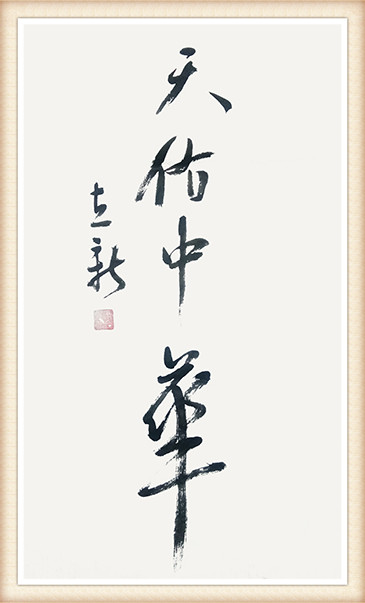 天佑中華
立新